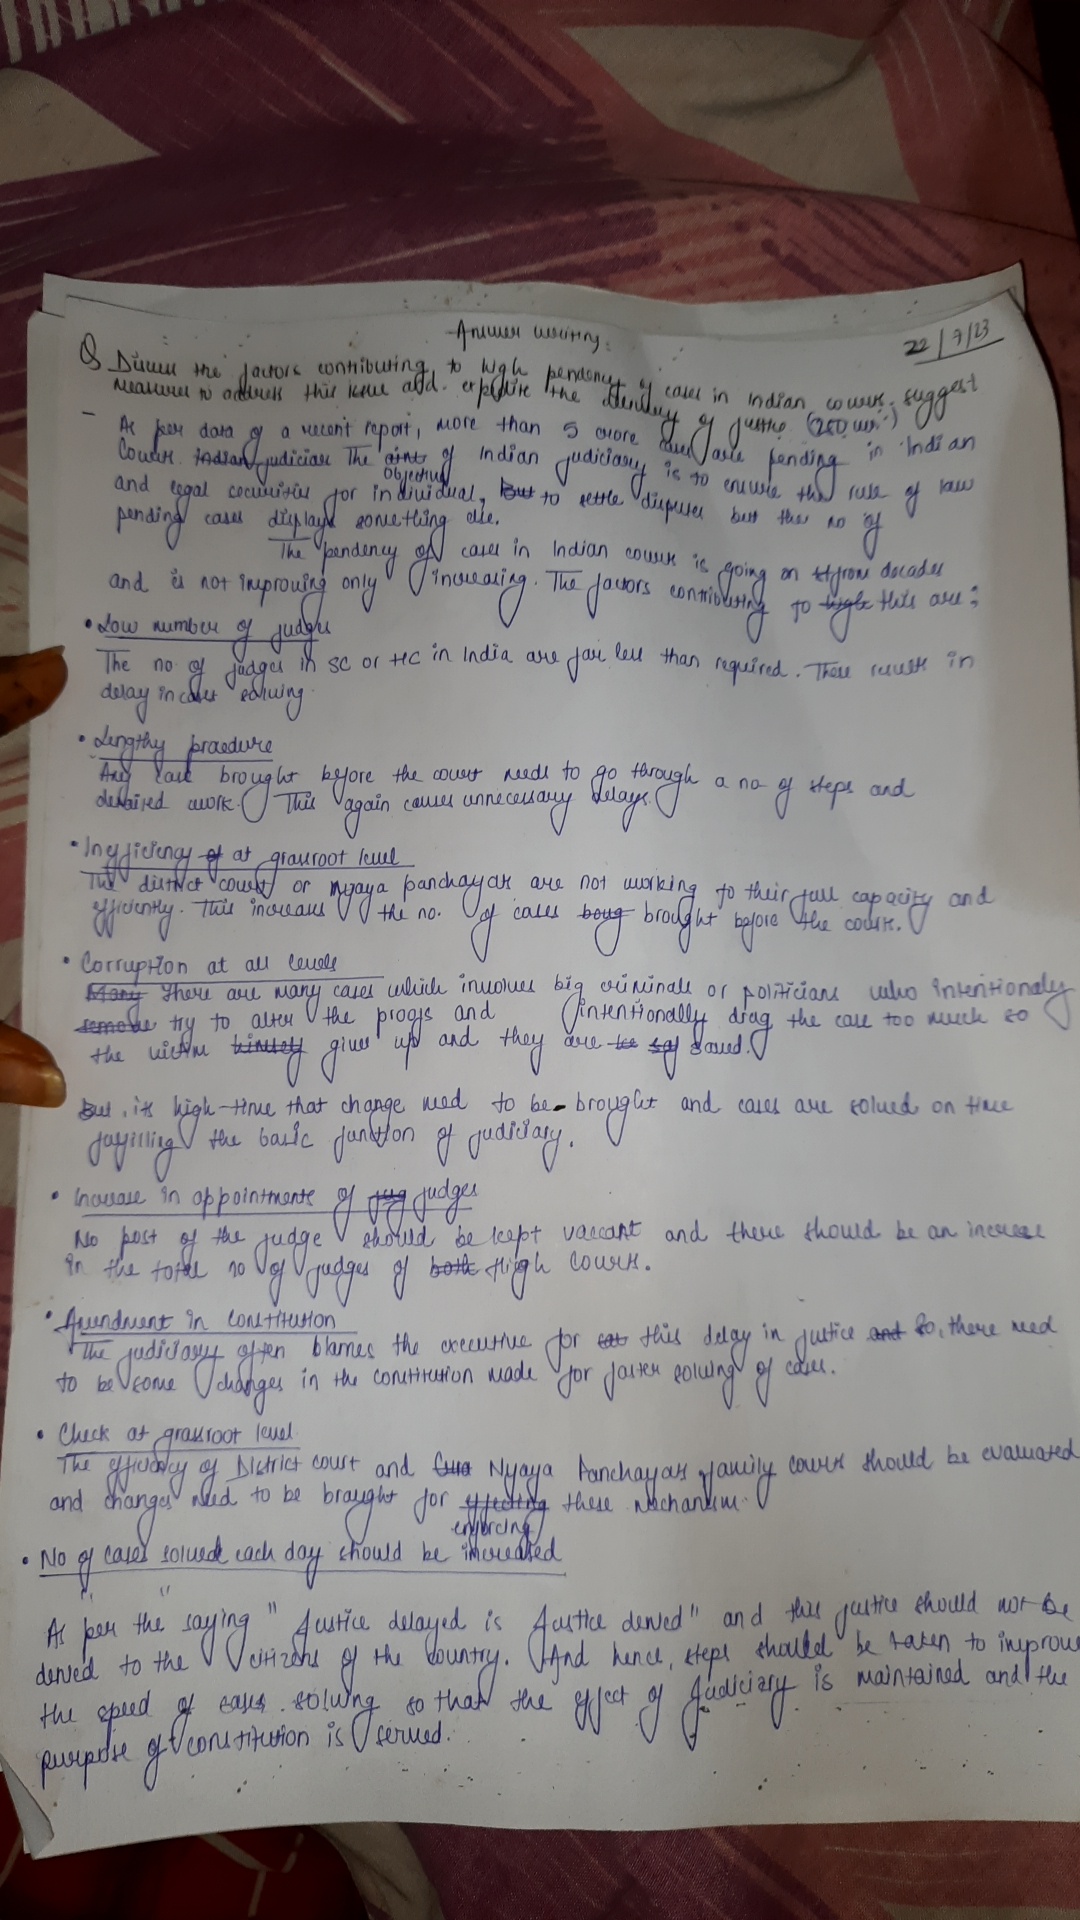 Answer writing:
22/7/23
Q Discuss the factors contributing to high pendency of cases in Indian courts. suggest
measures to address this issue and expedite the delivery of justice. (250 )
- As per data of a recent report, more than 5 crore cases are pending in Indian
Courts. Indian judiciary The aims of Indian judiciary is to ensure the rule of law
objective
and legal securities for individual, But to settle disputes but the no of
pending cases displays something else.
The pendency of cases in Indian courts is going on from decades
and is not improving only increasing. The factors contributing to high this are:
• Low number of judges
The no. of judges in SC or HC in India are far less than required. These result in
delay in cases solving.
• Lengthy procedure
Any case brought before the court needs to go through a no of steps and
detailed work. This again causes unnecessary delays.
• Inefficiency of at grassroot level
The district courts or nyaya panchayats are not working to their full capacity and
efficiently. This increases the no. of cases boug brought before the courts.
• Corruption at all levels
Many There are many cases which involves big criminals or politicians who intentionally
remove try to alter the proofs and intentionally drag the case too much so
the victim gives up and they are saved.
But, its high-time that change need to be brought and cases are solved on time
fulfilling the basic function of judiciary.
• Increase in appointments of jug judges
No post of the judge should be kept vaccant and there should be an increase
in the total no of judges of both High Courts.
• Amendment in Constitution
The judiciary often blames the executive for this delay in justice and So, there need
to be some changes in the constitution made for faster solving of cases.
• Check at grassroot level
The efficiency of District court and Nyaya Panchayats family courts should be evaluated
and changes need to be brought for effecting these mechanism.
enforcing
• No of cases solved each day should be increased
As per the saying "Justice delayed is Justice denied" and this justice should not be
denied to the citizens of the country. And hence, steps should be taken to improve
the speed of cases solving so that the effect of Judiciary is maintained and the
purpose of constitution is served.